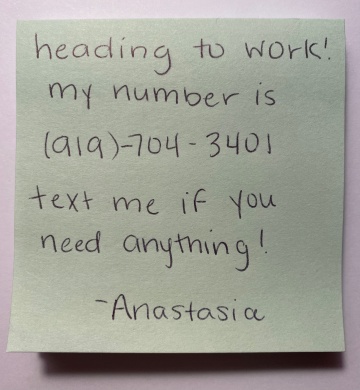 heading to work!
my number is
(919)-704-3401
text me if you
need anything!
-Anastasia